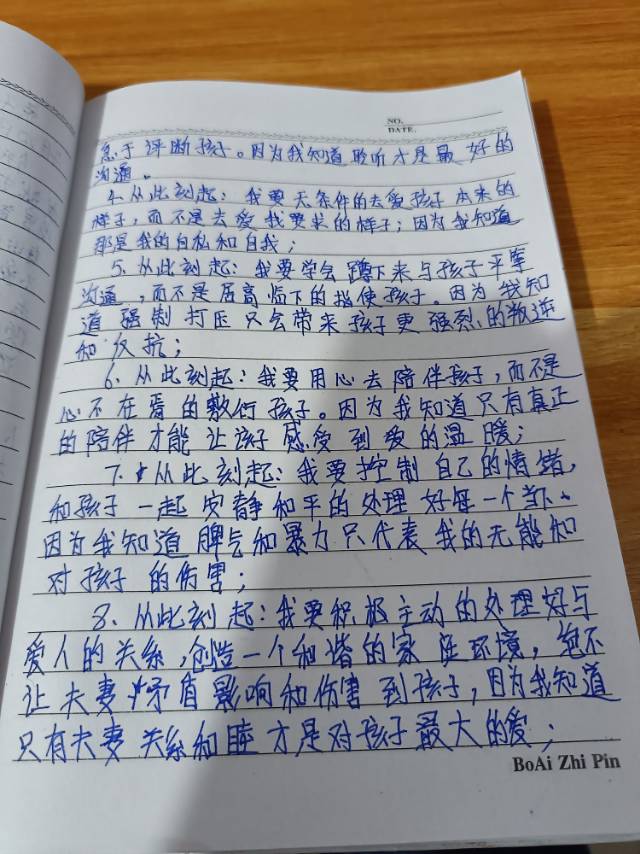 NO.
DATE.
急于评断孩子。因为我知道聆听才是最好的
沟通。
4、从此刻起：我要无条件的去爱孩子本来的
样子，而不是去爱我要求的样子；因为我知道
那是我的自私和自我；
5、从此刻起：我要学会蹲下来与孩子平等
沟通，而不是居高临下的指使孩子。因为我知
道强制打压只会带来孩子更强烈的叛逆
和反抗；
6、从此刻起：我要用心去陪伴孩子，而不是
心不在焉的敷衍孩子。因为我知道只有真正
的陪伴才能让孩子感受到爱的温暖；
7、从此刻起：我要控制自己的情绪，
和孩子一起安静和平的处理好每一个当下、
因为我知道脾气和暴力只代表我的无能和
对孩子的伤害；
8、从此刻起：我要积极主动的处理好与
爱人的关系，创造一个和谐的家庭环境，绝不
让夫妻矛盾影响和伤害到孩子，因为我知道
只有夫妻关系和睦才是对孩子最大的爱；
BoAi Zhi Pin